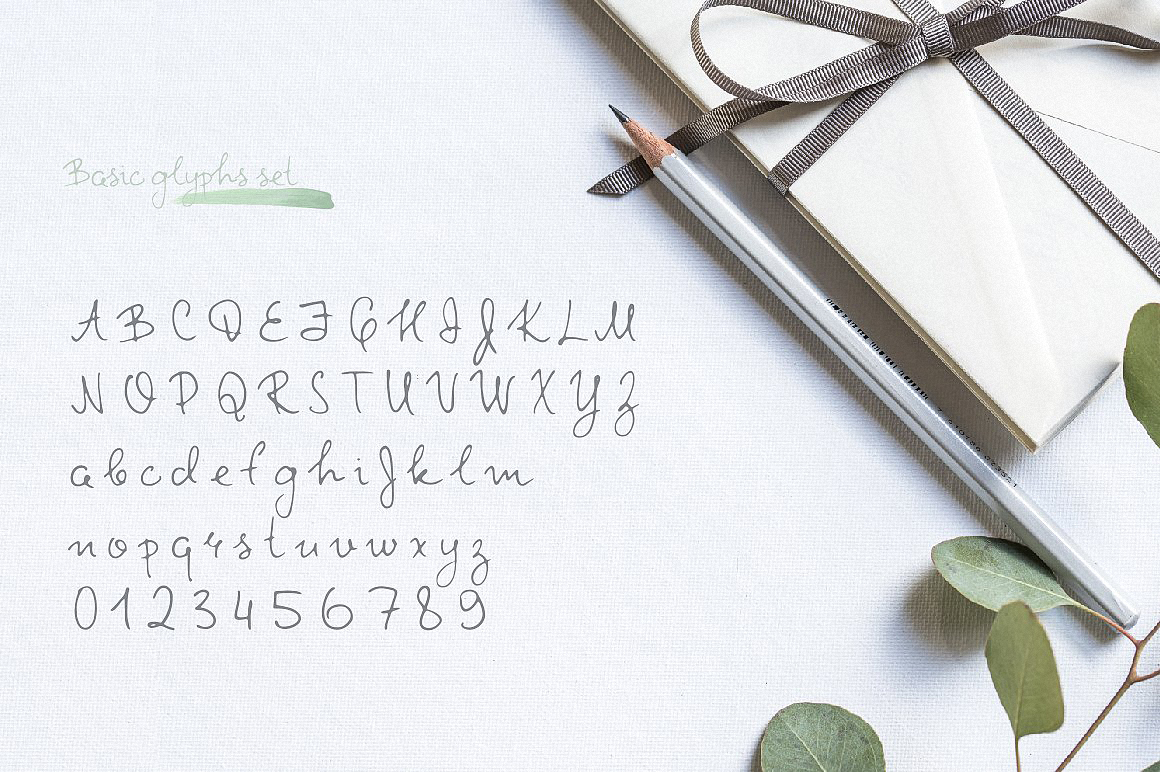 Basic glyphs set
A B C D E F G H I J K L M
N O P Q R S T U V W X Y Z
a b c d e f g h i j k l m
n o p q r s t u v w x y z
0 1 2 3 4 5 6 7 8 9